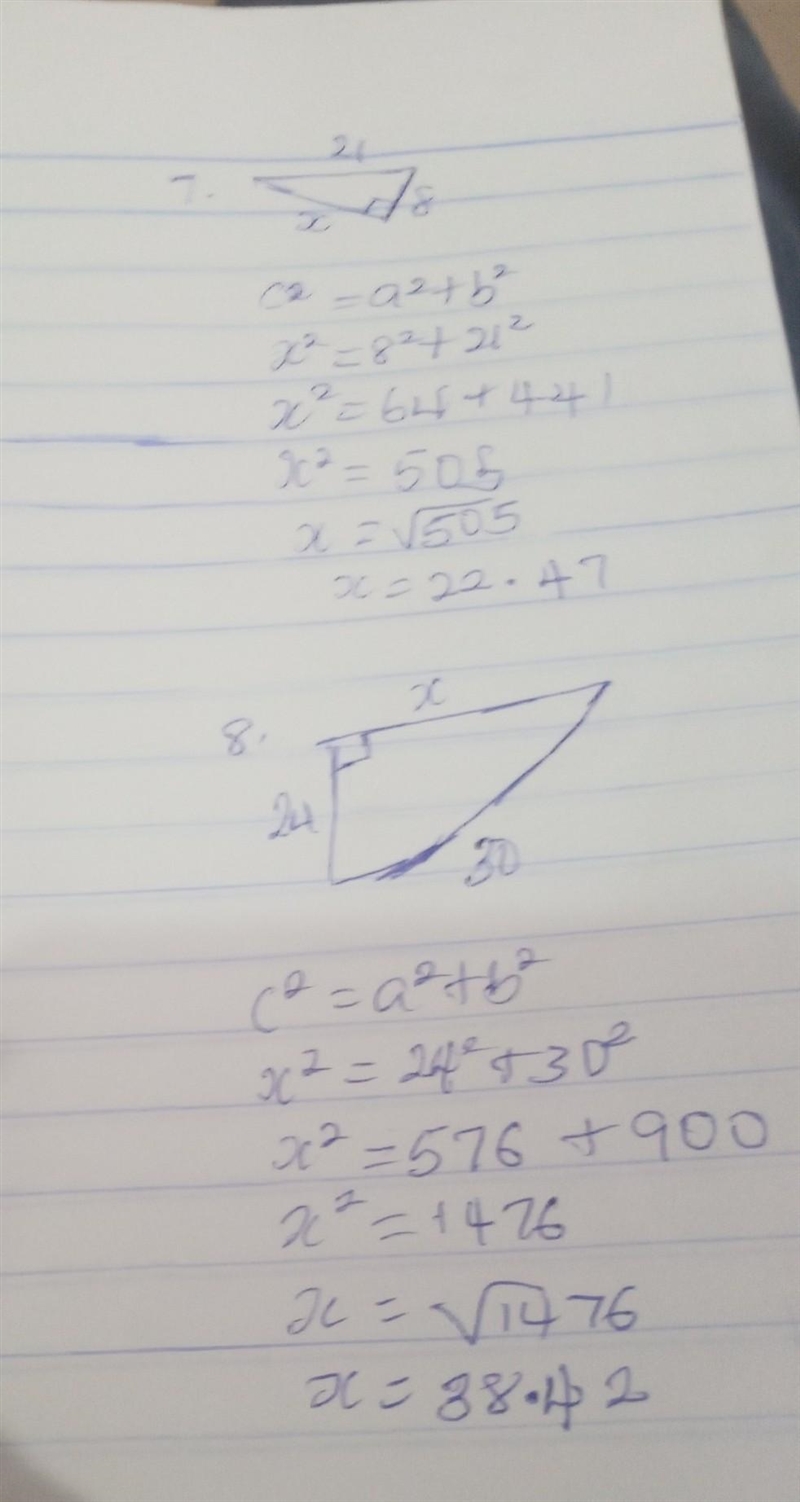 21
7.
8
x
c² = a² + b²
x² = 8² + 21²
x² = 64 + 441
x² = 505
x = √505
x = 22.47
x
8.
24
30
c² = a² + b²
x² = 24² + 30²
x² = 576 + 900
x² = 1476
x = √1476
x = 38.42